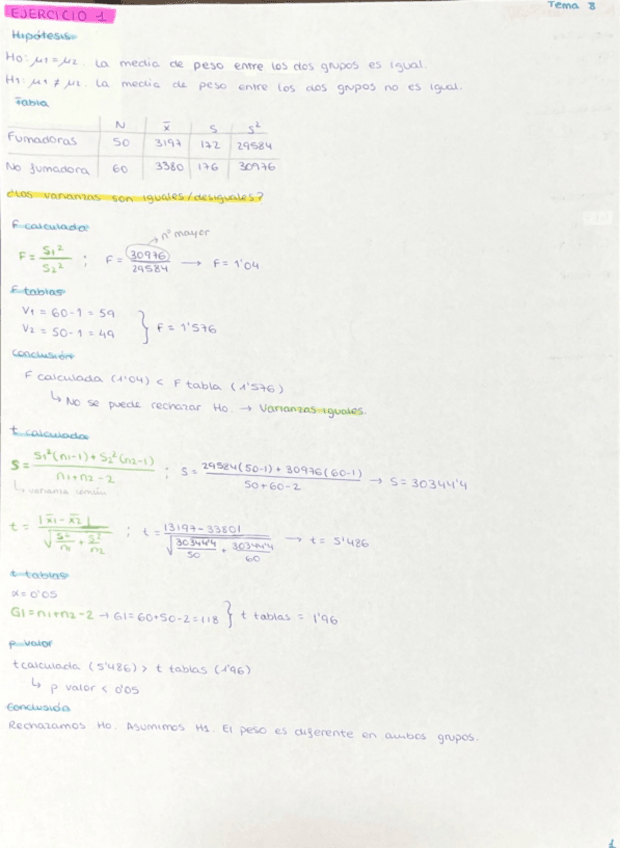 Tema 8
EJERCICIO 1
Hipótesis
H0: μ1 = μ2. La media de peso entre los dos grupos es igual.
H1: μ1 ≠ μ2. La media de peso entre los dos grupos no es igual.
Tabla
N x̄ S S²
Fumadoras 50 3197 172 29584
No fumadora 60 3380 176 30976
¿Las varianzas son iguales/desiguales?
F calculada
→ nº mayor
F = S1²/S2² ; F = 30976/29584 → F = 1'04
F tablas
V1 = 60-1 = 59
V2 = 50-1 = 49 } F = 1'576
Conclusión
F calculada (1'04) < F tabla (1'576)
↳ No se puede rechazar Ho. → Varianzas iguales.
t calculada
S = S1²(n1-1) + S2²(n2-1) / n1+n2-2 ; S = 29584(50-1) + 30976(60-1) / 50+60-2 → S = 30344'4
↳ varianza común
t = |x̄1 - x̄2| / √(S²/n1 + S²/n2) ; t = |3197-3380| / √(30344'4/50 + 30344'4/60) → t = 5'486
t tablas
α = 0'05
Gl = n1+n2-2 → Gl = 60+50-2 = 118 } t tablas = 1'96
p valor
t calculada (5'486) > t tablas (1'96)
↳ p valor < 0'05
Conclusión
Rechazamos Ho. Asumimos H1. El peso es diferente en ambos grupos.
1